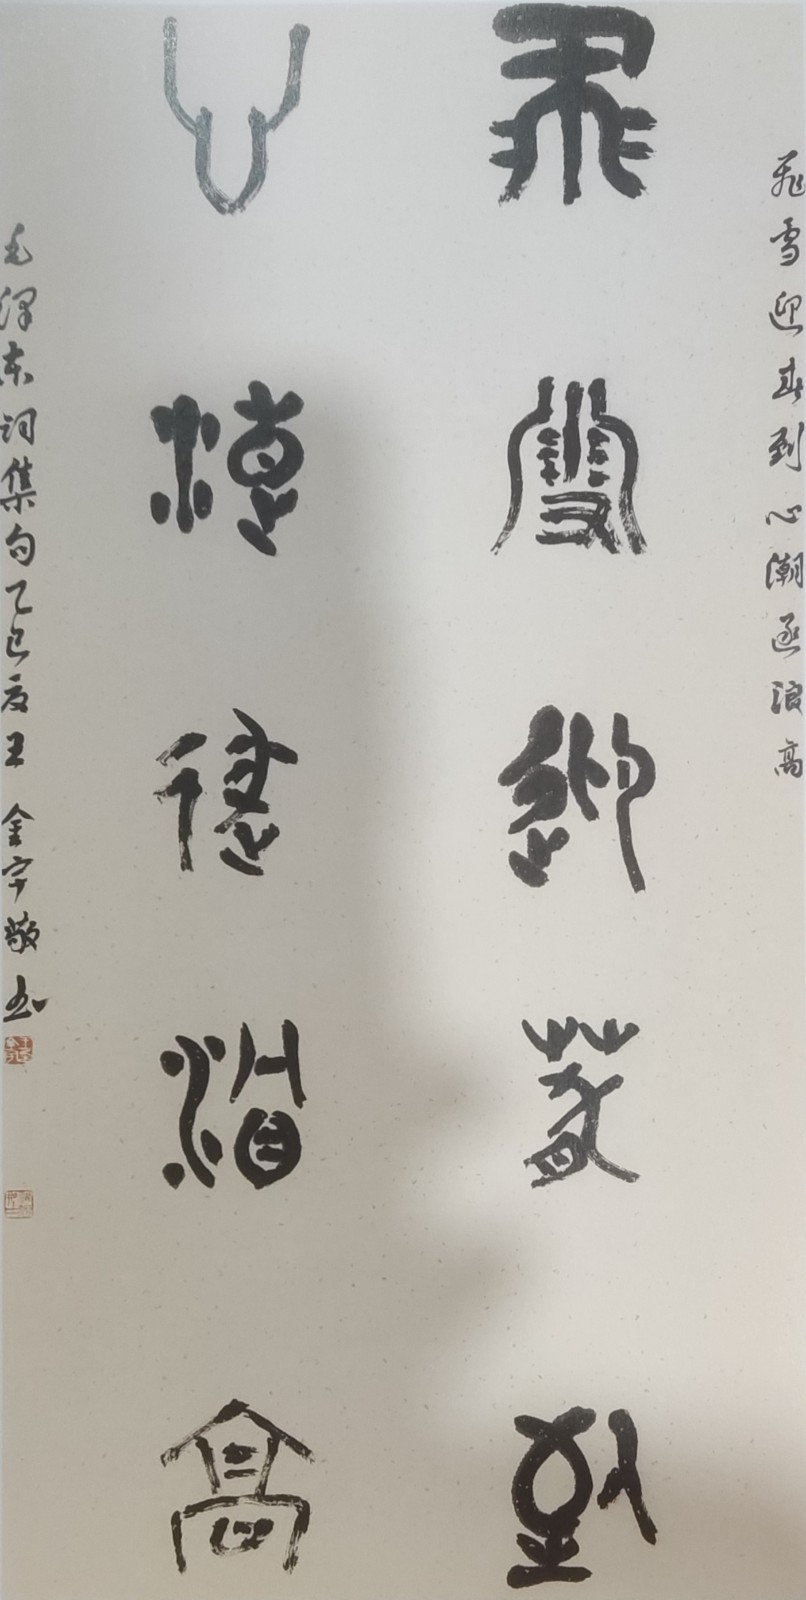 飞雪迎春到心潮逐浪高
飞雪迎春到
心潮逐浪高
毛泽东词集句乙巳夏王金字敬书